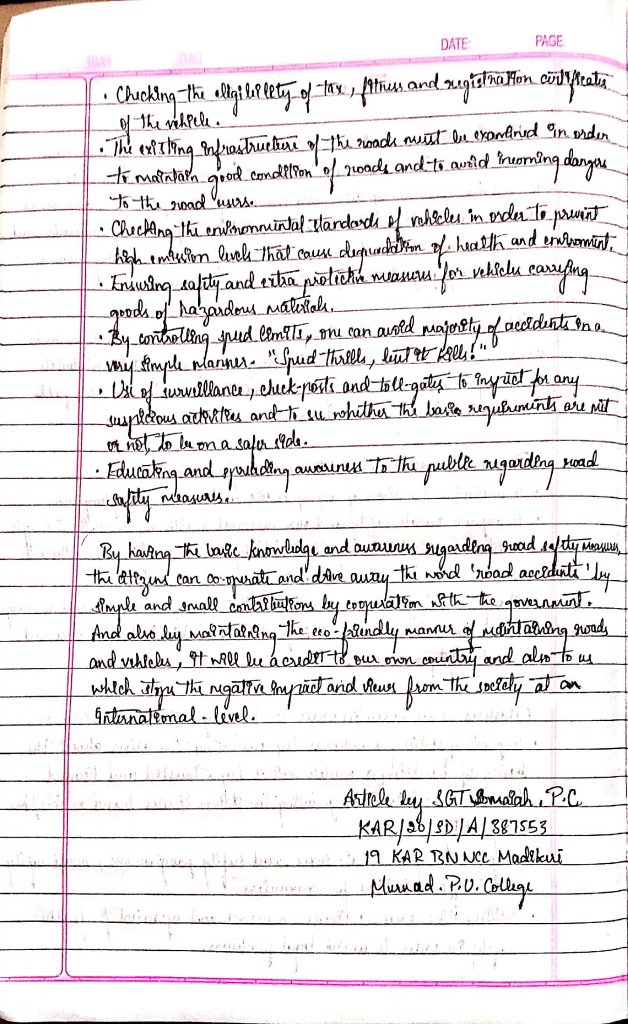 DATE: PAGE:
• Checking the eligibility of tax, fitness and registration certificates
of the vehicle.
• The existing infrastructure of the roads must be examined in order
to maintain good condition of roads and to avoid incoming dangers
to the road users.
• Checking the environmental standards of vehicles in order to prevent
high emission levels that cause degradation of health and environment.
• Ensuring safety and extra protective measures for vehicles carrying
goods of hazardous materials.
• By controlling speed limits, one can avoid majority of accidents in a
very simple manner. "Speed thrills, but it kills!"
• Use of surveillance, check-posts and toll-gates to inspect for any
suspicious activities and to see whether the basic requirements are met
or not, to be on a safer side.
• Educating and spreading awareness to the public regarding road
safety measures.
By having the basic knowledge and awareness regarding road safety measures,
the citizens can co-operate and drive away the word 'road accidents' by
simple and small contributions by cooperation with the government.
And also by maintaining the eco-friendly manner of maintaining roads
and vehicles, it will be a credit to our own country and also to us
which stops the negative impact and views from the society at an
international-level.
Article by SGT Somaiah. P.C
KAR/20/SD/A/387553
19 KAR BN NCC Madikeri
Murnad. P.U. College